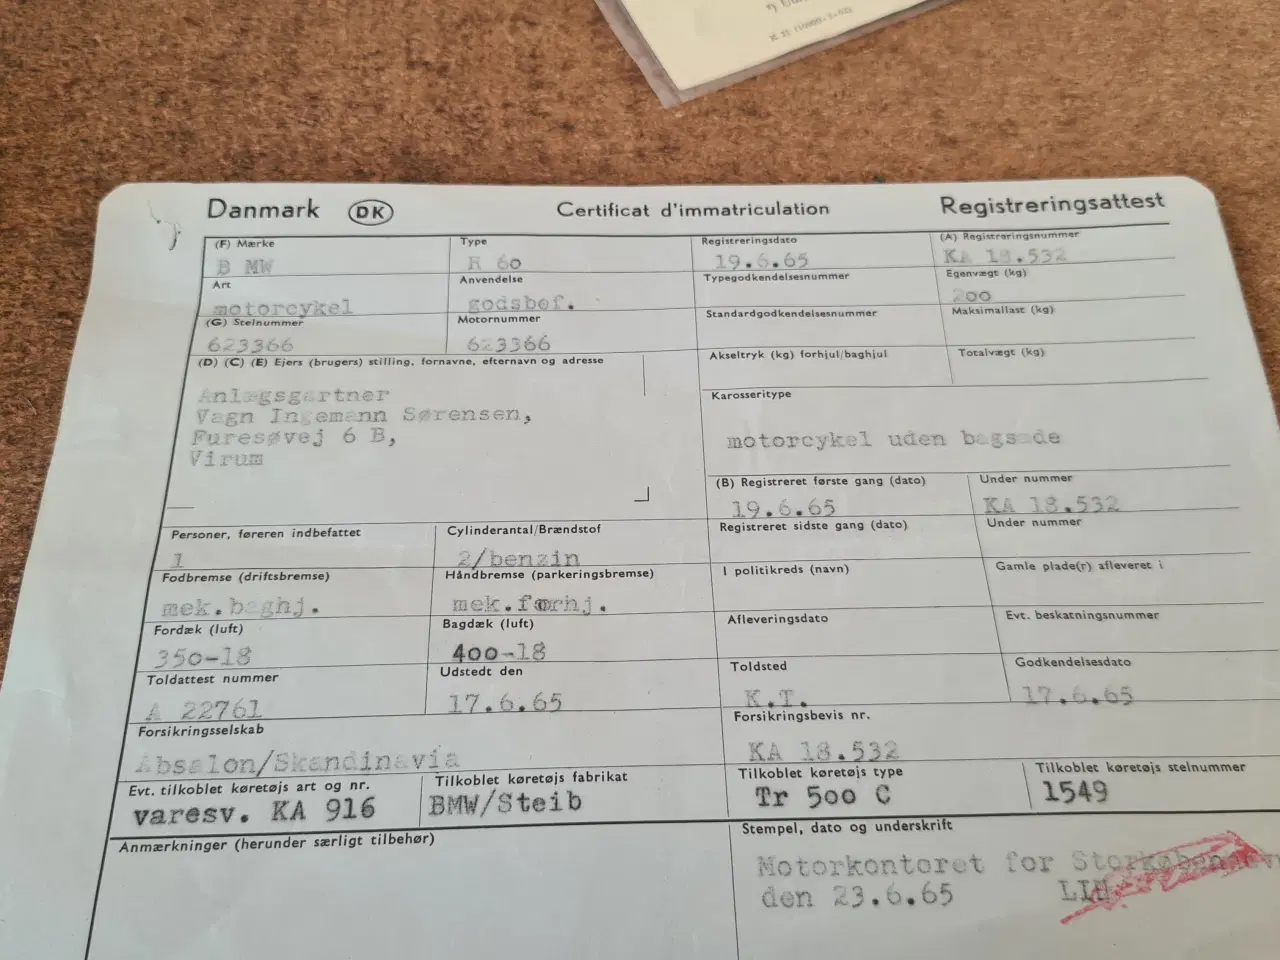 Danmark DK Certificat d'immatriculation Registreringsattest
(F) Mærke Type Registreringsdato (A) Registreringsnummer
B MW R 60 19.6.65 KA 18.532
Art Anvendelse Typegodkendelsesnummer Egenvægt (kg)
motorcykel godsbef. 200
(G) Stelnummer Motornummer Standardgodkendelsesnummer Maksimallast (kg)
623366 623366
(D) (C) (E) Ejers (brugers) stilling, fornavne, efternavn og adresse Akseltryk (kg) forhjul/baghjul Totalvægt (kg)
Anlægsgartner
Vagn Ingemann Sørensen,
Furesøvej 6 B,
Virum
Karosseritype
motorcykel uden bagsæde
(B) Registreret første gang (dato) Under nummer
19.6.65 KA 18.532
Personer, føreren indbefattet Cylinderantal/Brændstof Registreret sidste gang (dato) Under nummer
1 2/benzin
Fodbremse (driftsbremse) Håndbremse (parkeringsbremse) I politikreds (navn) Gamle plade(r) afleveret i
mek.baghj. mek.forhj.
Fordæk (luft) Bagdæk (luft) Afleveringsdato Evt. beskatningsnummer
350-18 400-18
Toldattest nummer Udstedt den Toldsted Godkendelsesdato
A 22761 17.6.65 K.T. 17.6.65
Forsikringsselskab Forsikringsbevis nr.
Absalon/Skandinavia KA 18.532
Evt. tilkoblet køretøjs art og nr. Tilkoblet køretøjs fabrikat Tilkoblet køretøjs type Tilkoblet køretøjs stelnummer
varesv. KA 916 BMW/Steib Tr 500 C 1549
Anmærkninger (herunder særligt tilbehør) Stempel, dato og underskrift
Motorkontoret for
den 23.6.65